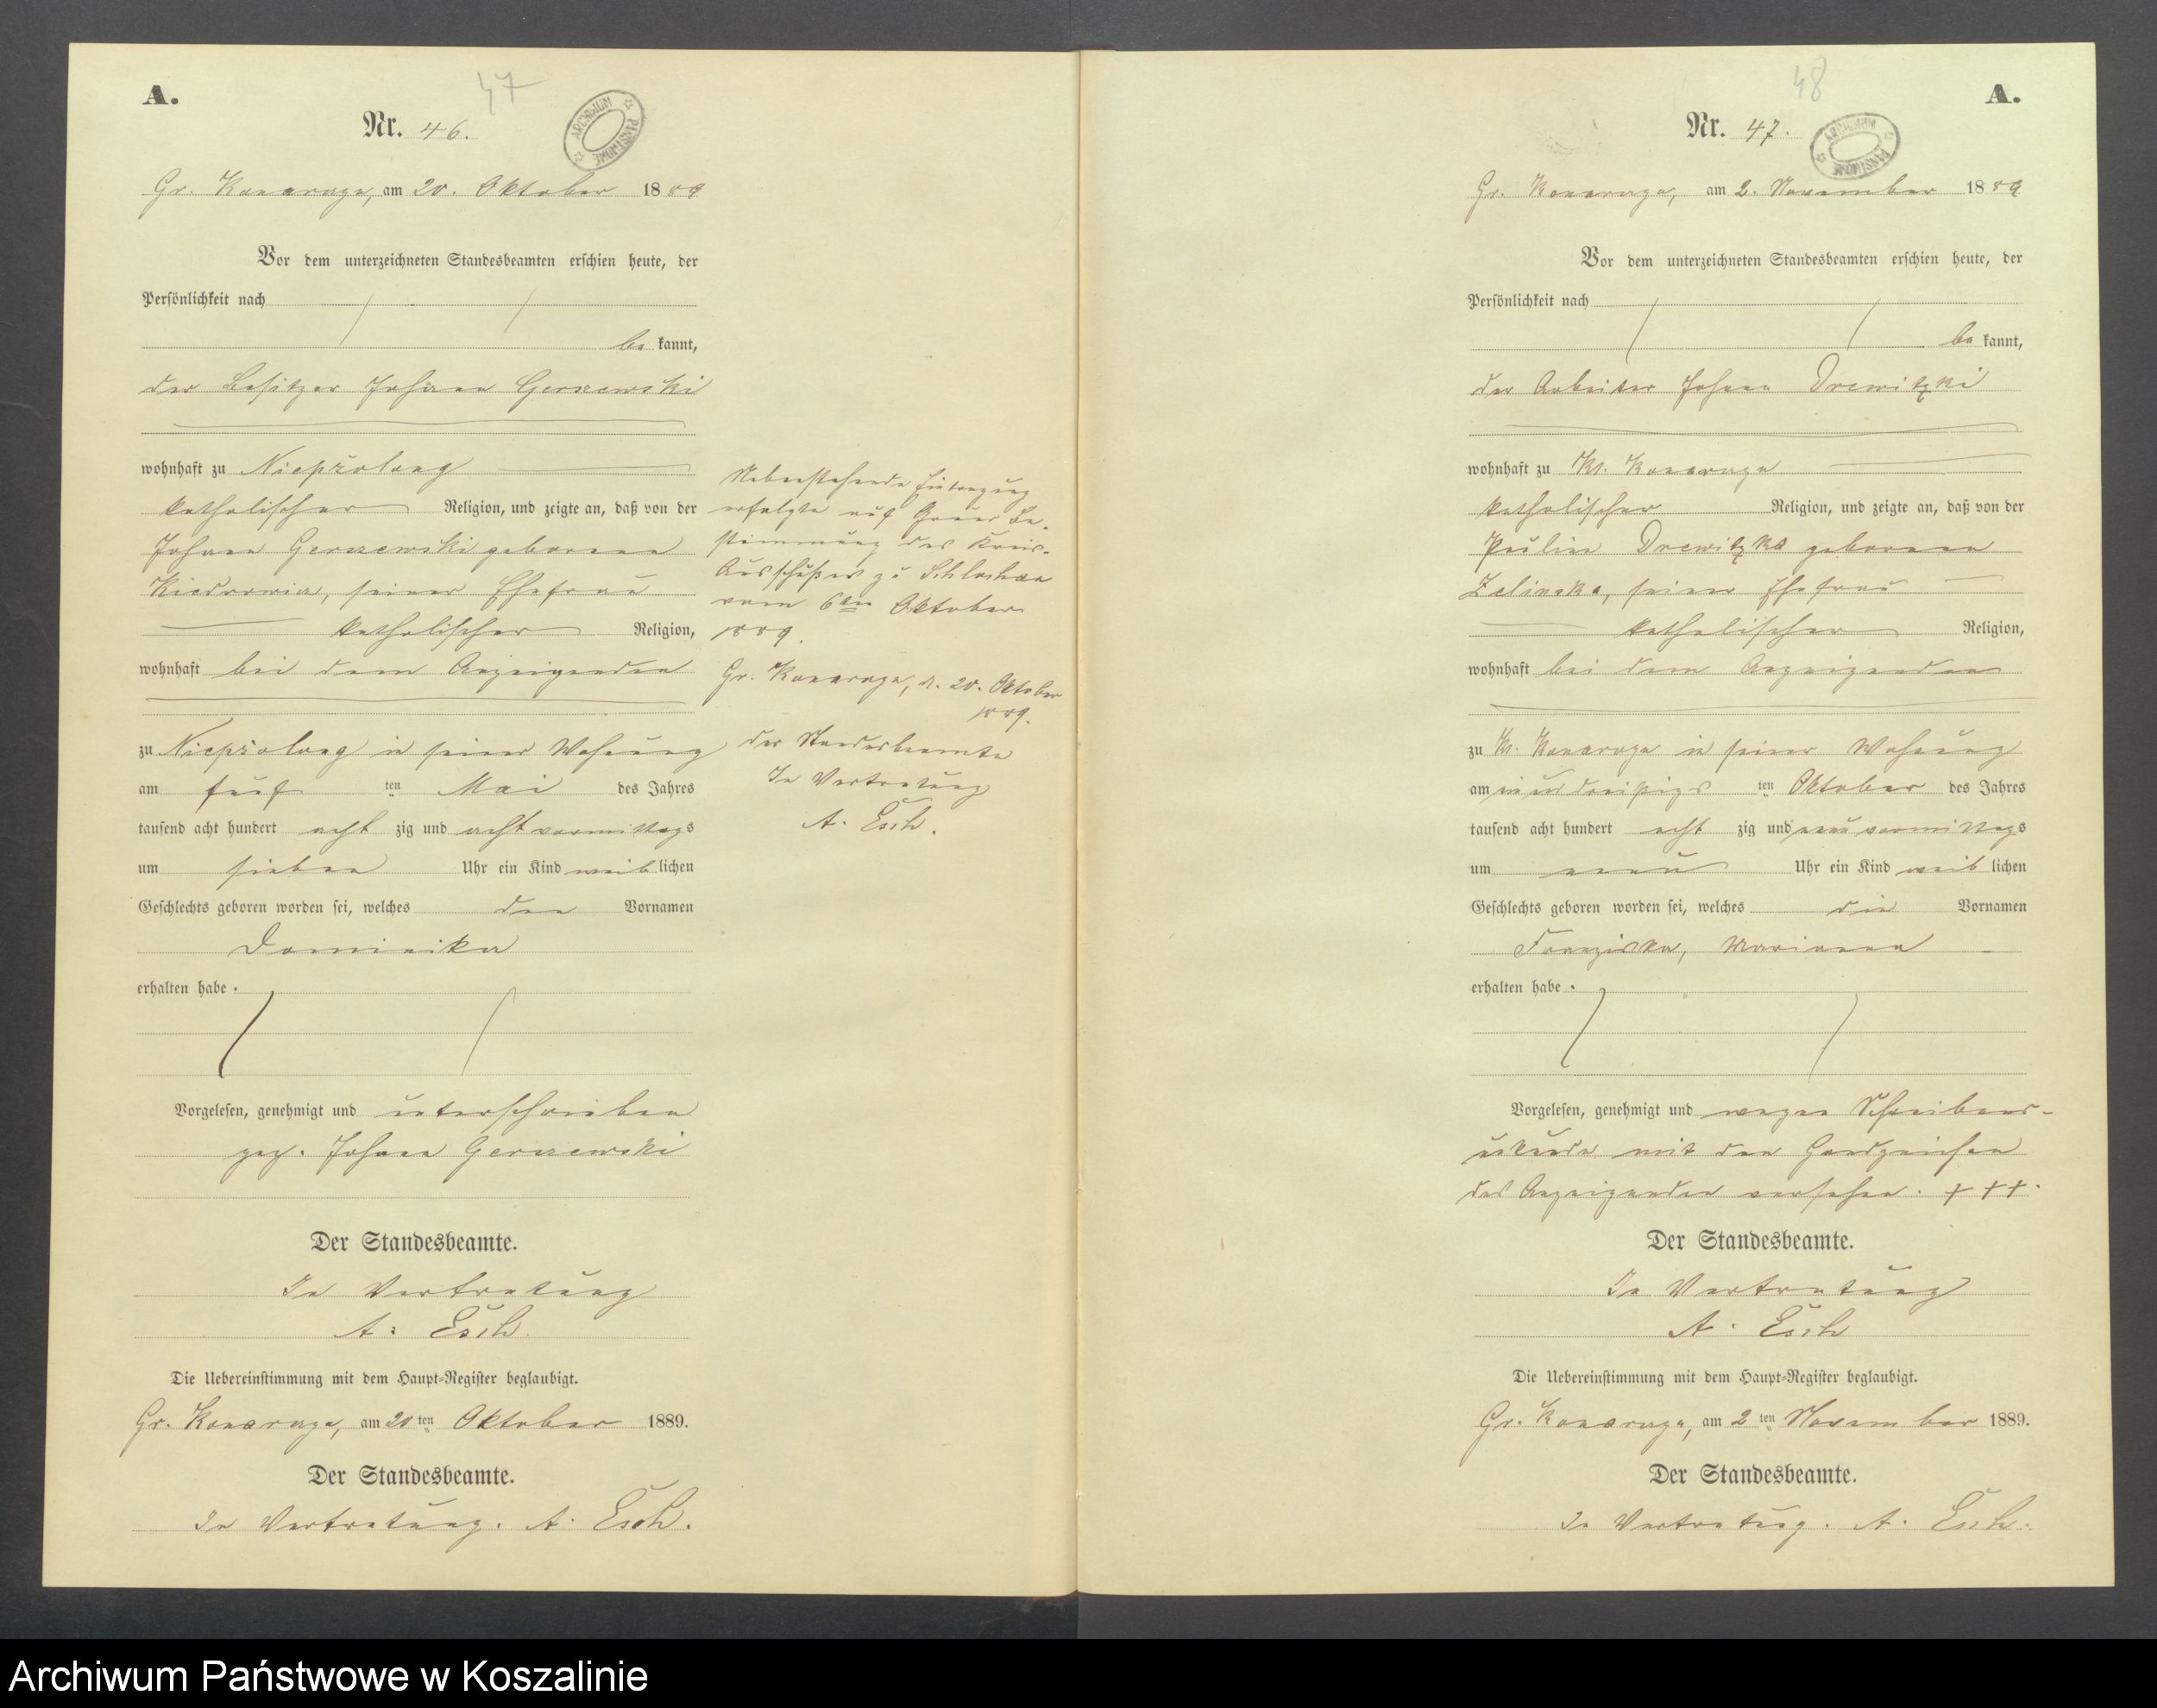 A.
47
Nr. 46.
ARCHIWUM PAŃSTWOWE
Gr. Konarczyn, am 20. Oktober 1889
Vor dem unterzeichneten Standesbeamten erschien heute, der
Persönlichkeit nach
be kannt,
der Besitzer Johann Gerszewski
wohnhaft zu Niepszolong
katholischer Religion, und zeigte an, daß von der
Johann Gerszewski geborene
seiner Ehefrau
katholischer Religion,
wohnhaft bei dem Anzeigenden
zu Niepszolong in seiner Wohnung
am fünf ten Mai des Jahres
tausend acht hundert acht zig und acht vormittags
um sieben Uhr ein Kind weib lichen
Geschlechts geboren worden sei, welches den Vornamen
Dominika
erhalten habe.
Vorgelesen, genehmigt und unterschrieben
gez. Johann Gerszewski
Der Standesbeamte.
In Vertretung
A. Esch.
Die Uebereinstimmung mit dem Haupt-Register beglaubigt.
Gr. Konarczyn, am 20 ten Oktober 1889.
Der Standesbeamte.
In Vertretung. A. Esch.
Nebenstehende Eintragung
erfolgte auf Grund Be-
stimmung des Kreis-
Ausschußes zu Schlochau
vom 6ten Oktober
1889.
Gr. Konarczyn, d. 20. Oktober
1889.
der Standesbeamte
In Vertretung
A. Esch.
48
A.
Nr. 47.
ARCHIWUM PAŃSTWOWE
Gr. Konarczyn, am 2. November 1889
Vor dem unterzeichneten Standesbeamten erschien heute, der
Persönlichkeit nach
be kannt,
der Arbeiter Johann Drewitzki
wohnhaft zu Kl. Konarczyn
katholischer Religion, und zeigte an, daß von der
Pauline Drewitzka geborene
Zelinska, seiner Ehefrau
katholischer Religion,
wohnhaft bei dem Anzeigenden
zu Kl. Konarczyn in seiner Wohnung
am ein und dreißigs ten Oktober des Jahres
tausend acht hundert acht zig und neun vormittags
um neun Uhr ein Kind weib lichen
Geschlechts geboren worden sei, welches die Vornamen
Franziska, Marianna
erhalten habe.
Vorgelesen, genehmigt und wegen Schreibens-
unkunde mit den Handzeichen
des Anzeigenden versehen. +++.
Der Standesbeamte.
In Vertretung
A. Esch
Die Uebereinstimmung mit dem Haupt-Register beglaubigt.
Gr. Konarczyn, am 2 ten November 1889.
Der Standesbeamte.
In Vertretung. A. Esch.
Archiwum Państwowe w Koszalinie